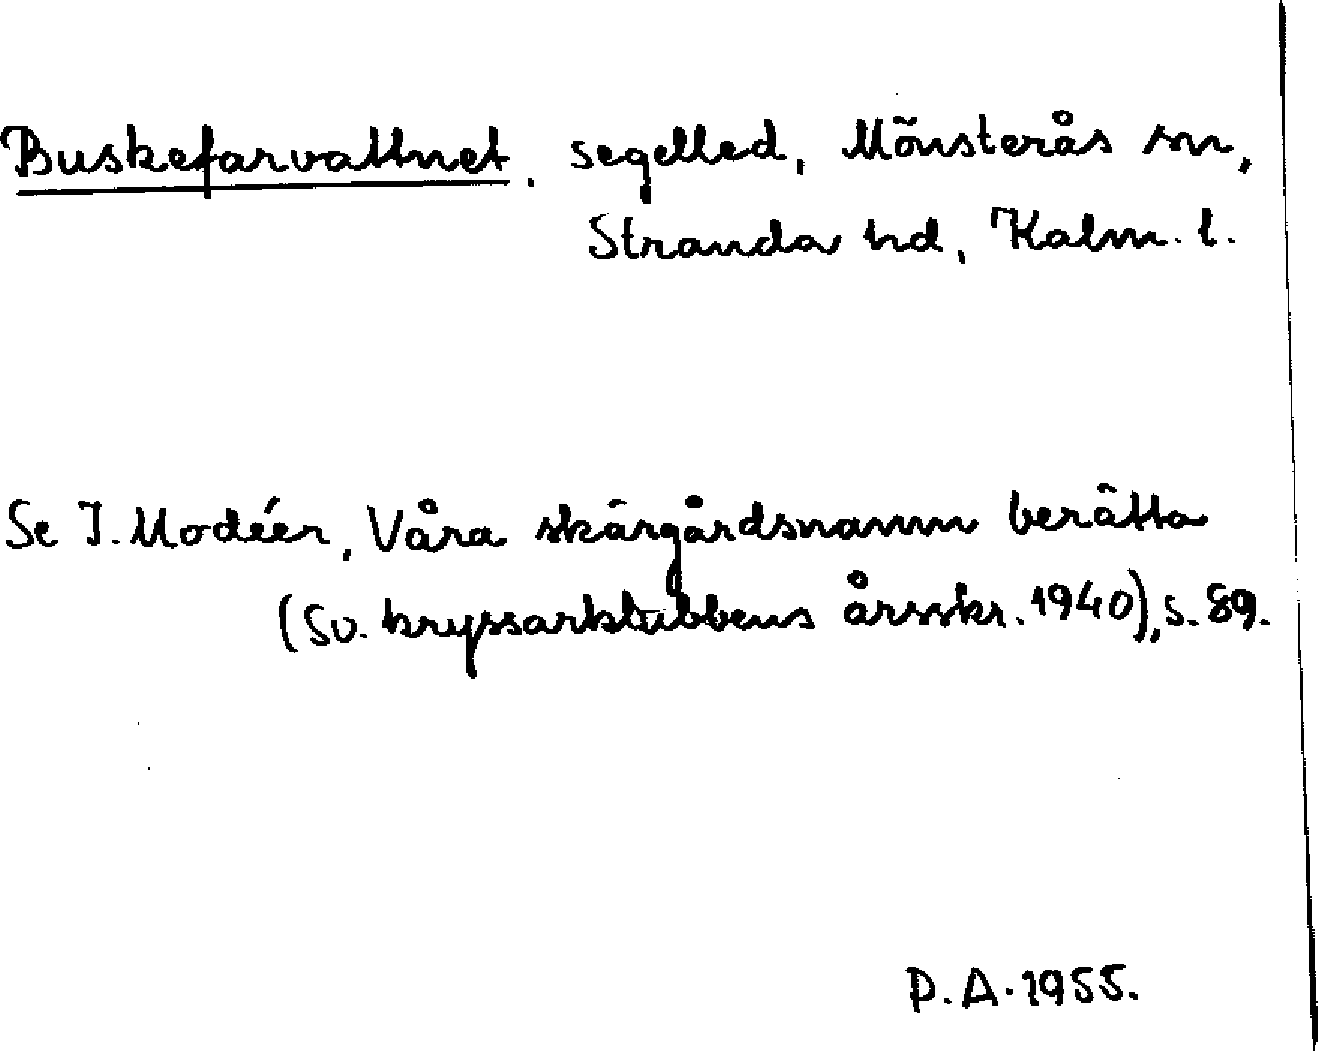 Buskefarvattnet, segelled, Mönsterås sn,
Stranda hd, Kalm. l.
Se I. Modéer, Våra skärgårdsnamn berätta
(Sv. kryssarklubbens årsskr. 1940), s. 89.
P.A. 1955.